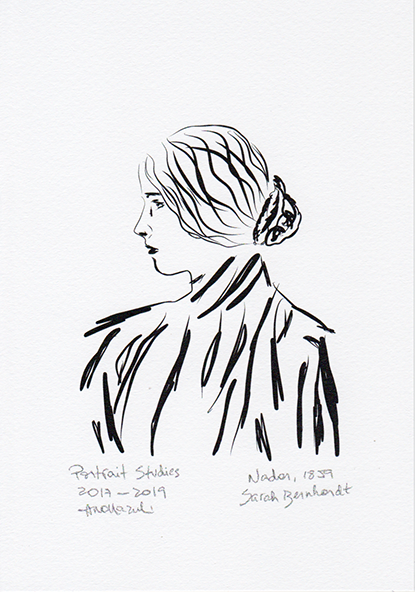 Portrait Studies
2017 – 2019
Nadar, 1859
Sarah Bernhardt